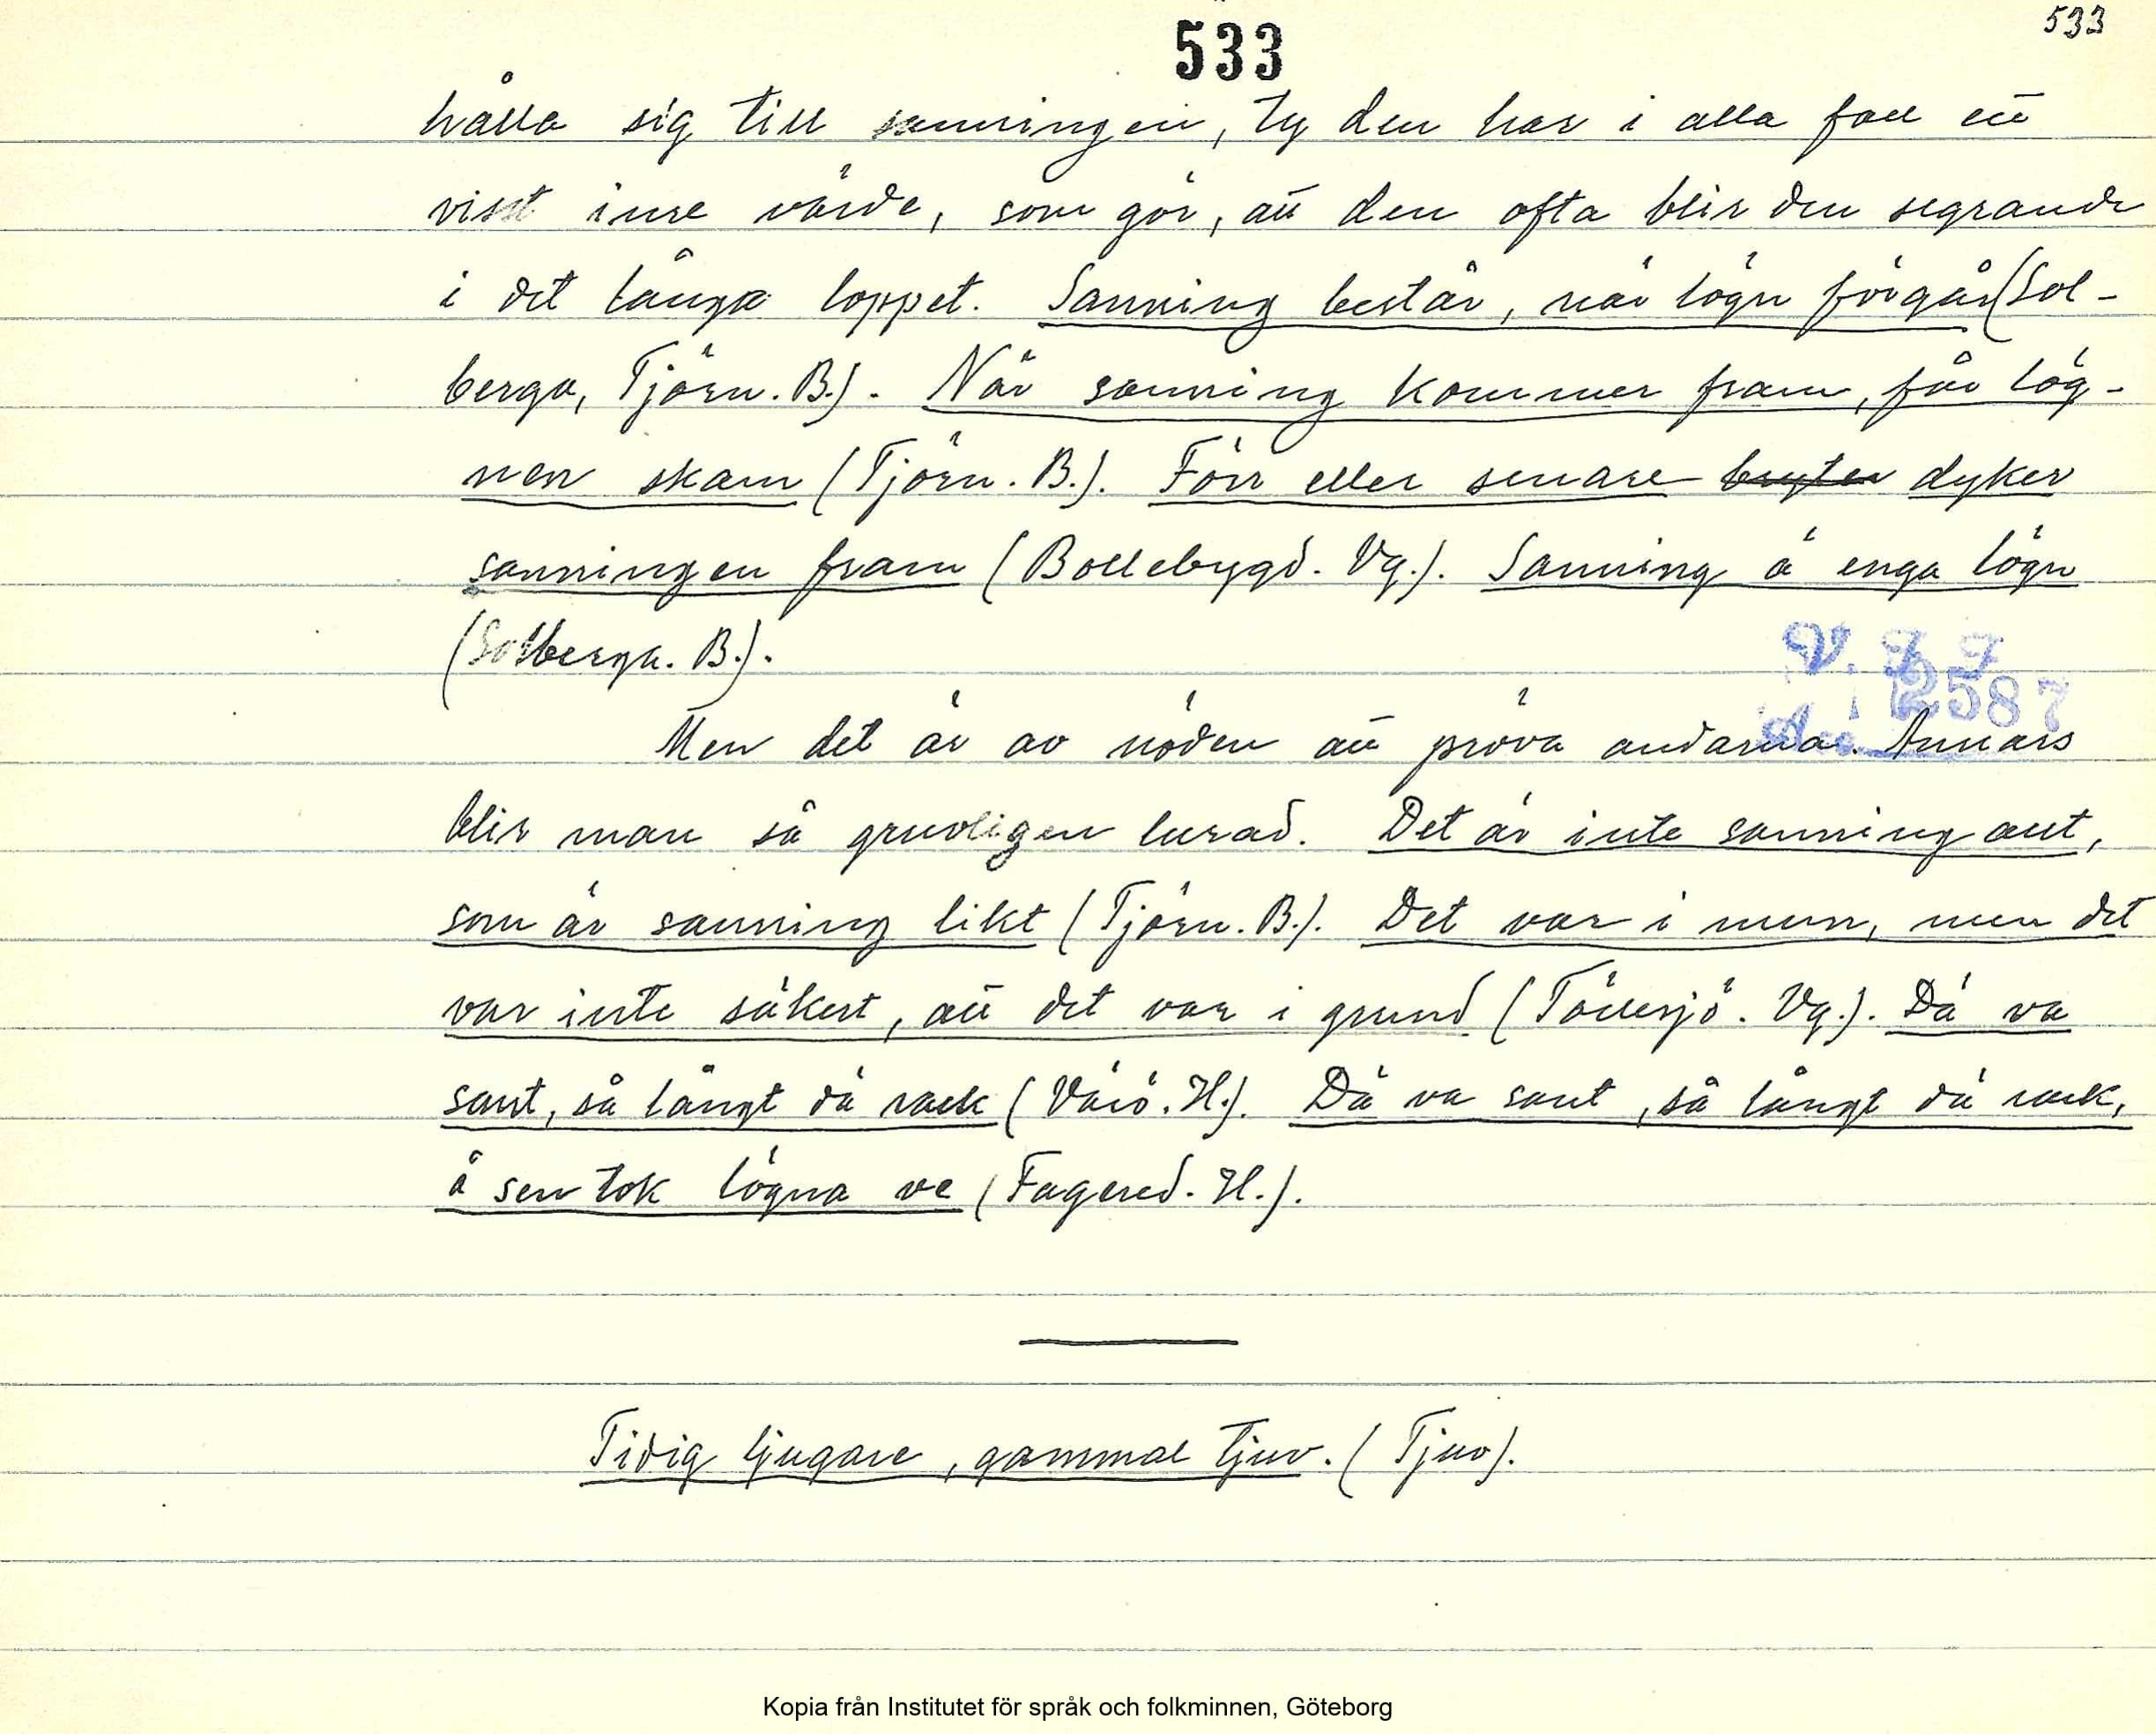 533
533
hålla sig till sanningen, ty den har i alla fall ett
visst inre värde, som gör, att den ofta blir den segrande
i det långa loppet. Sanning består, när lögn förgår (Sol-
berga, Tjörn. B.). När sanning kommer fram, får lög-
nen skam (Tjörn. B.). Förr eller senare bryter dyker
sanningen fram (Bollebygd. Vg.). Sanning ä enga lögn
(Solberga. B.).
V. F. F.
2587
Acc.
Men det är av nöden att pröva andarna. Annars
blir man så gruvligen lurad. Det är inte sanning allt,
som är sanning likt (Tjörn. B.). Det var i mun, men det
var inte säkert, att det var i grund (Töllesjö. Vg.). Dä va
sant, så långt dä rack (Värö. H.). Dä va sant, så långt dä rack,
å sen tok lögna ve (Fagered. H.).
Tidig ljugare, gammal tjuv. (Tjuv).
Kopia från Institutet för språk och folkminnen, Göteborg